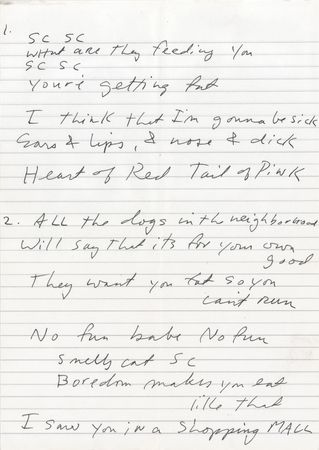 1.
SC SC
what are they feeding you
SC SC
you're getting fat
I think that I'm gonna be sick
Ears & lips, & nose & dick
Heart of Red Tail of Pink
2. ALL the dogs in the neighborhood
Will say that its for your own
good
They want you fat so you
can't run
No fun babe No fun
Smelly cat SC
Boredom makes you eat
like that
I saw you in a Shopping MALL